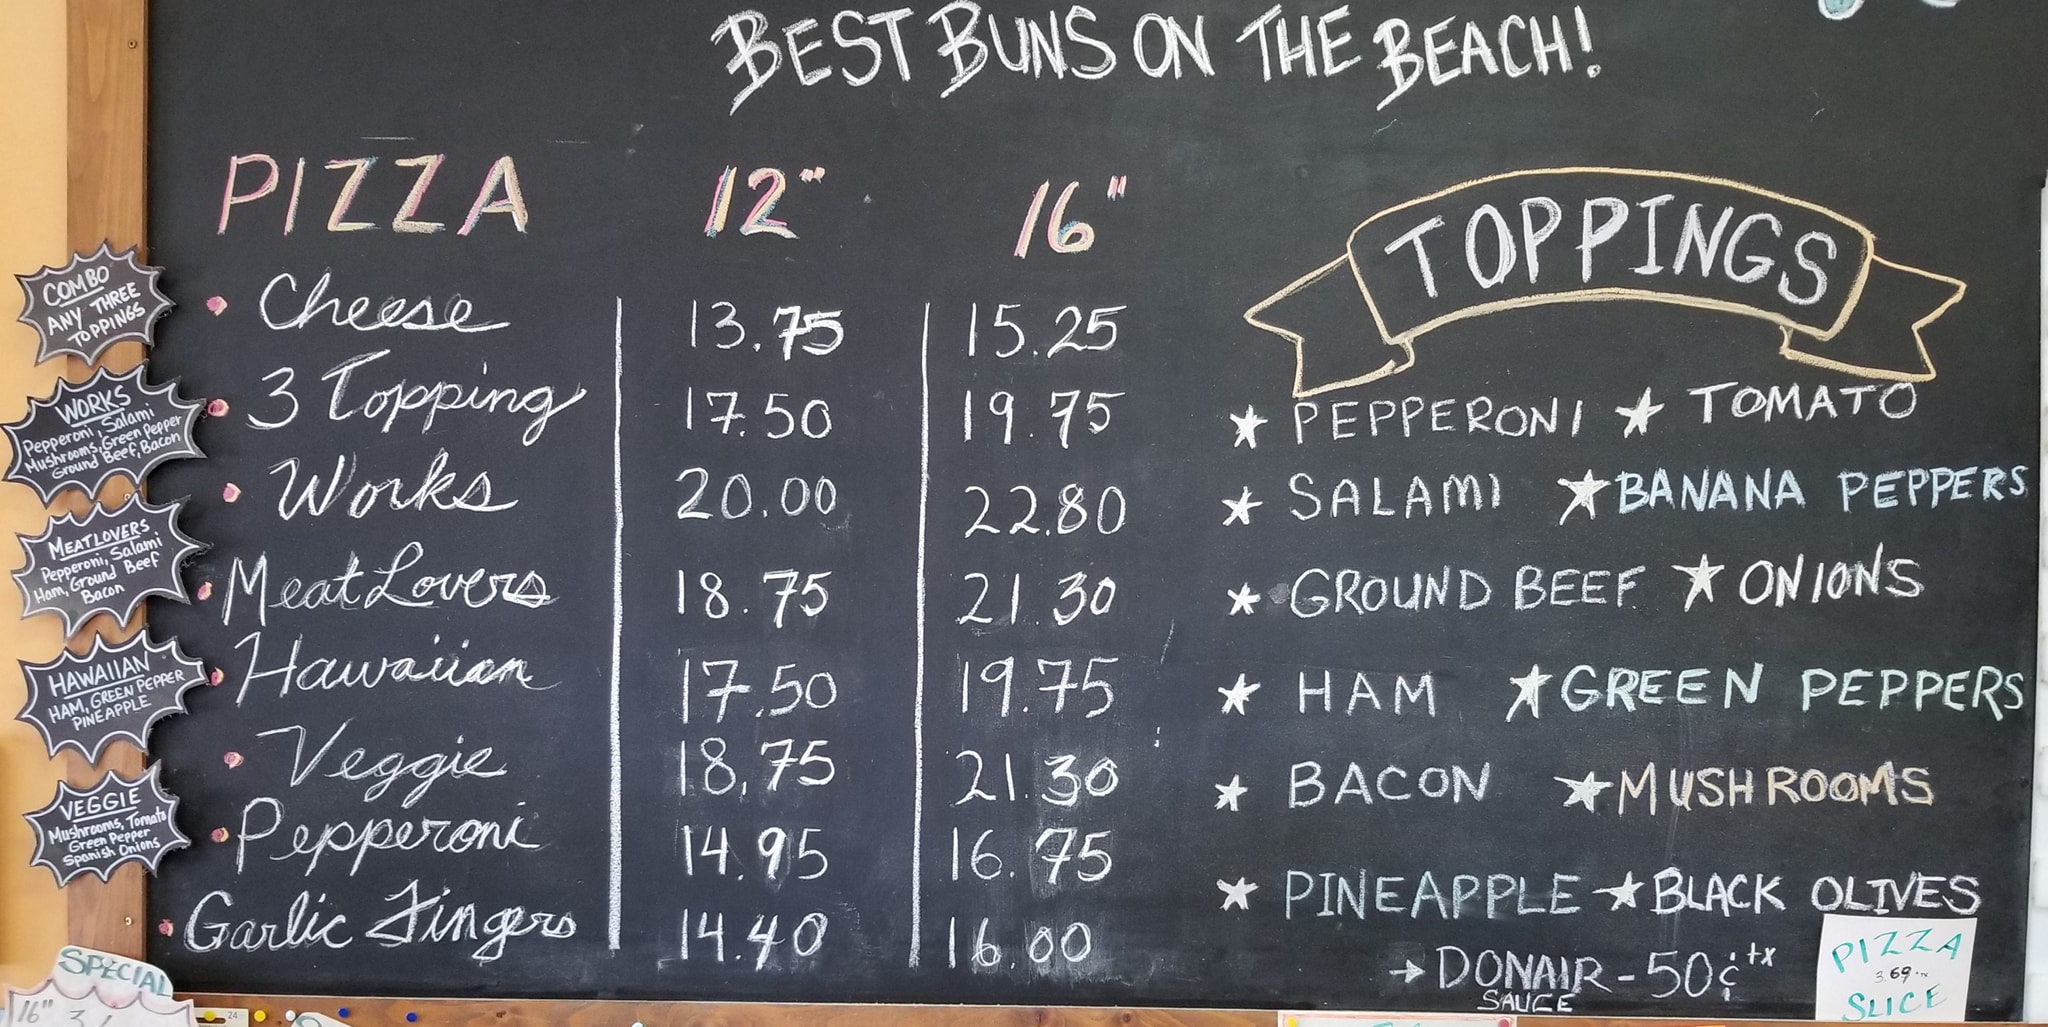 BEST BUNS ON THE BEACH!
PIZZA 12" 16"
Cheese 13.75 15.25
3 Topping 17.50 19.75
Works 20.00 22.80
Meat Lovers 18.75 21.30
Hawaiian 17.50 19.75
Veggie 18.75 21.30
Pepperoni 14.95 16.75
Garlic Fingers 14.40 16.00
TOPPINGS
PEPPERONI TOMATO
SALAMI BANANA PEPPERS
GROUND BEEF ONIONS
HAM GREEN PEPPERS
BACON MUSHROOMS
PINEAPPLE BLACK OLIVES
→ DONAIR - 50¢ tx
SAUCE
PIZZA
3.69 tx
SLICE
COMBO
ANY THREE
TOPPINGS
WORKS
Pepperoni, Salami
Mushrooms, Green Pepper
Ground Beef, Bacon
MEATLOVERS
Pepperoni, Salami
Ham, Ground Beef
Bacon
HAWAIIAN
HAM, GREEN PEPPER
PINEAPPLE
VEGGIE
Mushrooms, Tomato
Green Pepper
Spanish Onions
SPECIAL
16"
24